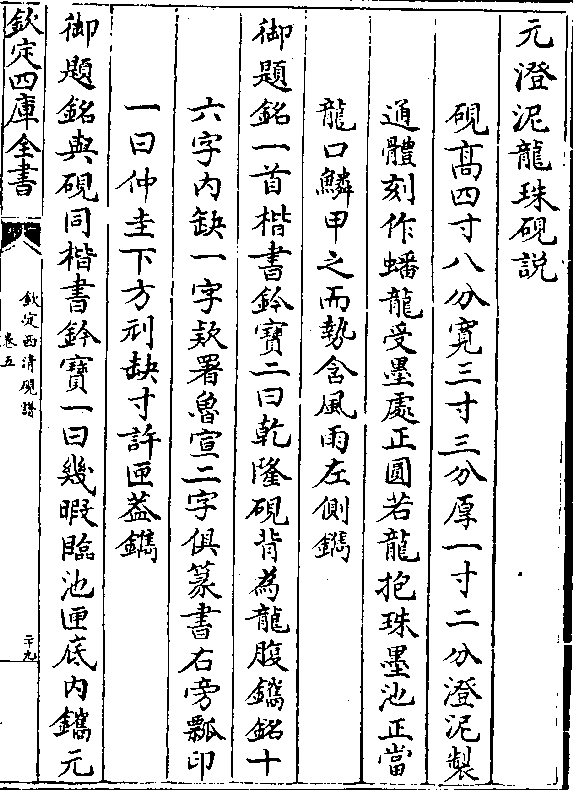 元澄泥龍珠硯説
硯髙四寸八分寛三寸三分厚一寸二分澄泥製
通體刻作蟠龍受墨處正圓若龍抱珠墨池正當
龍口鱗甲之而勢含風雨左側鐫
御題銘一首楷書鈐寳二曰乾隆硯背為龍腹鐫銘十
六字内缺一字欵署魯宣二字俱篆書右旁瓢印
一曰仲圭下方刓缺寸許匣葢鐫
御題銘與硯同楷書鈐寳一曰幾暇臨池匣底内鐫元
欽定四庫全書
欽定西清硯譜
卷五
二九